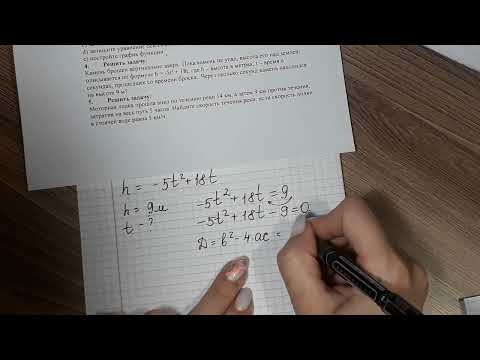 б) запишите уравнение
с) постройте график функции
4. Решить задачу:
Камень брошен вертикально вверх. Пока камень не упал, высота его над землей
описывается по формуле h = -5t² + 18t, где h – высота в метрах, t – время в
секундах, прошедшее со времени броска. Через сколько секунд камень находился
на высоте 9 м?
5. Решить задачу:
Моторная лодка прошла вниз по течению реки 14 км, а затем 9 км против течения,
затратив на весь путь 5 часов. Найдите скорость течения реки, если скорость лодки
в стоячей воде равна 5 км/ч.
h = -5t² + 18t
h = 9м
t - ?
-5t² + 18t = 9
-5t² + 18t - 9 = 0
D = b² - 4ac =